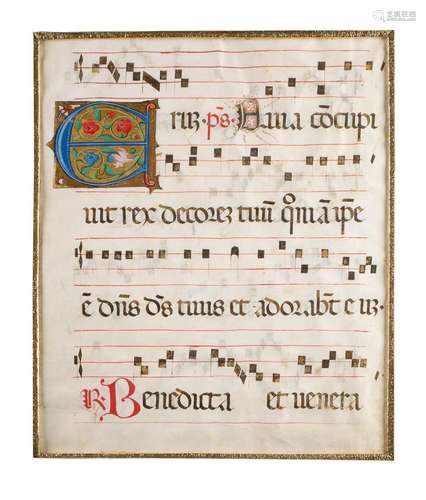 E riuz · ps · Quia cōcupi
uit rex decorez tuū qm̄ ā ip̄e
ē dn̄s ds̄ tuus et adorabt̄ euz ·
R · Benedicta et venera